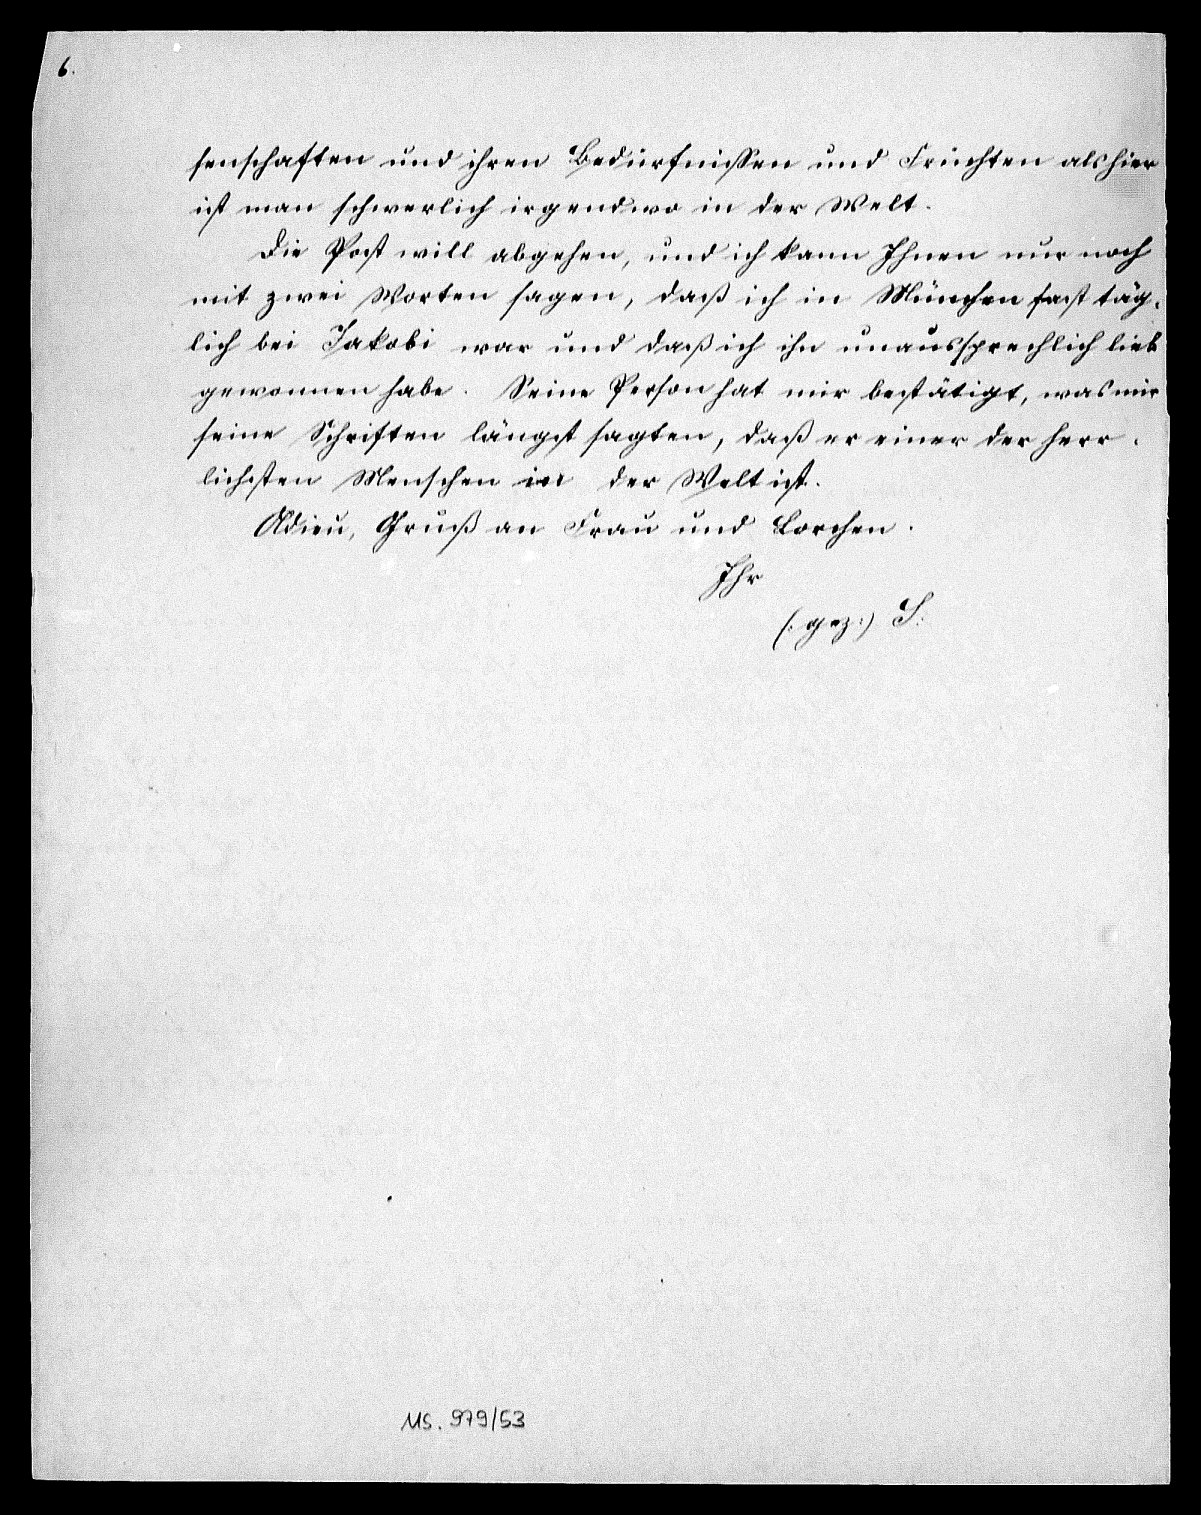 6.
senschaften und ihren Bedürfnissen und Früchten als hier
ist man schwerlich irgendwo in der Welt.
Die Post will abgehen, und ich kann Ihnen nur noch
mit zwei Worten sagen, daß ich in München fast täg-
lich bei Jakobi war und daß ich ihn unaussprechlich lieb
gewonnen habe. Seine Person hat mir bestätigt, was mir
seine Schriften längst sagten, daß er einer der herr-
lichsten Menschen in der Welt ist.
Adieu, Gruß an Frau und Lorchen.
Ihr
(: gez :) S.
MS. 979/53